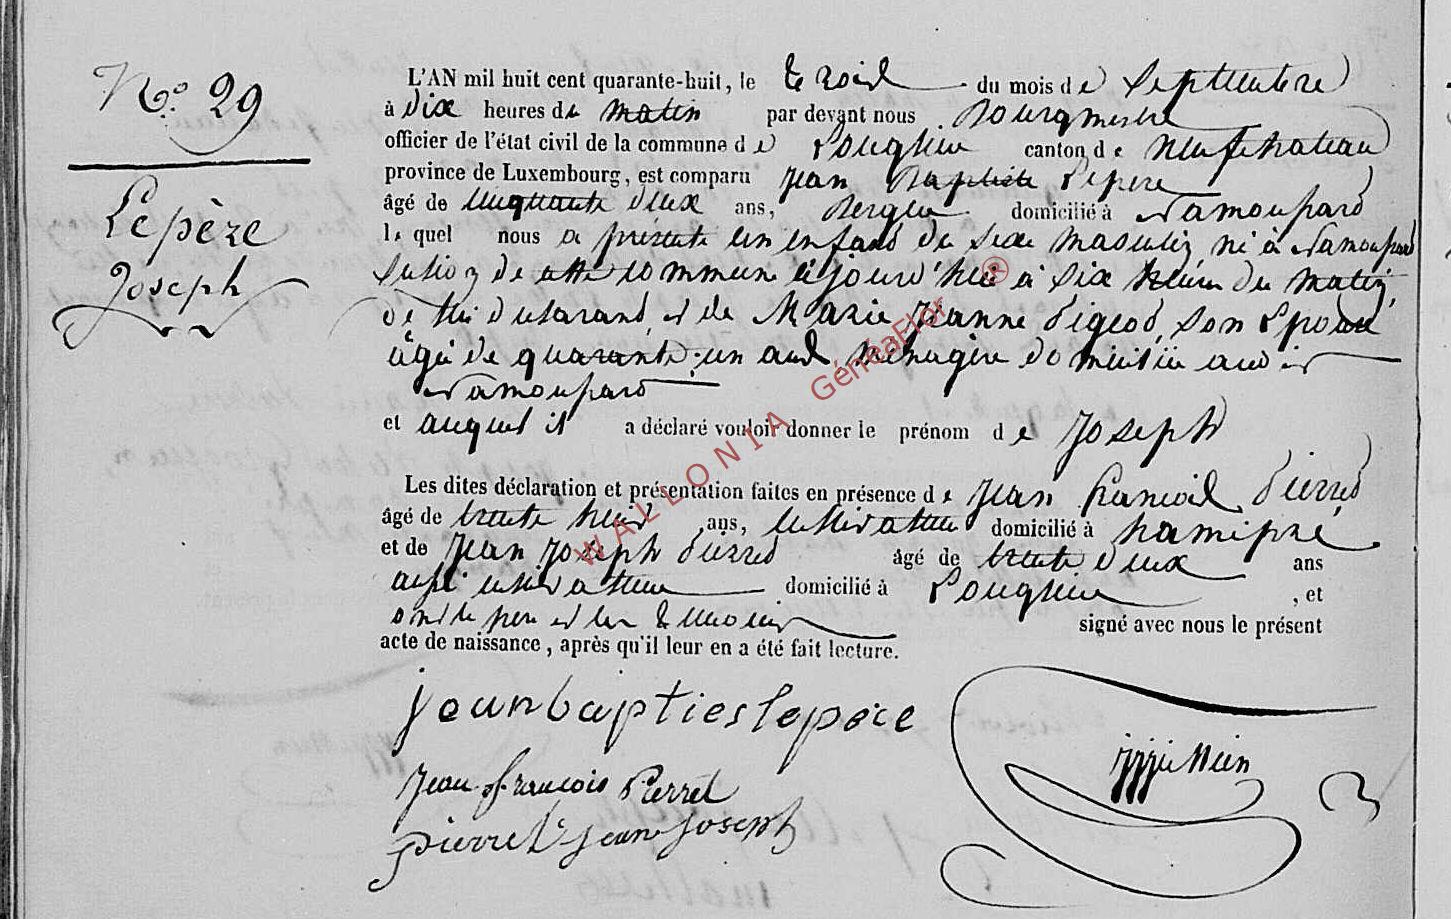 N.° 29
Lepèze
Joseph
L'AN mil huit cent quarante-huit, le trois du mois de Septembre
à dix heures du matin par devant nous Bourgmestre
officier de l'état civil de la commune de Longlier canton de Neufchateau
province de Luxembourg, est comparu Jean Baptiste Lepere
âgé de cinquante deux ans, Berger domicilié à Namoupard
lequel nous a présenté un enfant du sexe masculin, né à Namoupard
section de cette commune cejourd'hui à six heures du matin,
de lui déclarant, et de Marie Jeanne Pigeod, son Epouse
âgée de quarante-un ans, ménagère domiciliée audit
Namoupard
et auquel il a déclaré vouloir donner le prénom de Joseph
Les dites déclaration et présentation faites en présence de Jean François Pierret
âgé de trente huit ans, cultivateur domicilié à hamipré,
et de Jean Joseph Pierret âgé de trente deux ans
aussi cultivateur domicilié à Longlier, et
ont le père et les témoins signé avec nous le présent
acte de naissance, après qu'il leur en a été fait lecture.
jeanbaptieslepère
Jean-François Pierret
pierret jean joseph
WALLONIA GénéaFlor ®